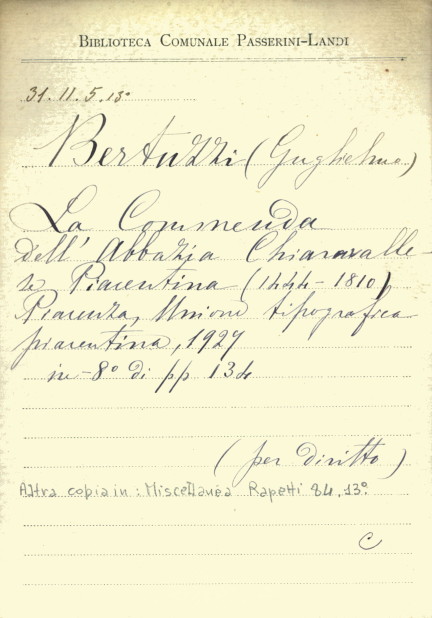 BIBLIOTECA COMUNALE PASSERINI-LANDI
31. 11. 5. 13º
Bertuzzi (Guglielmo)
La Commenda
dell' Abbazia Chiaravalle-
se Piacentina (1444-1810)
Piacenza, Unione tipografica
piacentina, 1927
in-8º di pp 134
(per diritto)
Altra copia in: Miscellanea Rapetti 84, 13º.
C